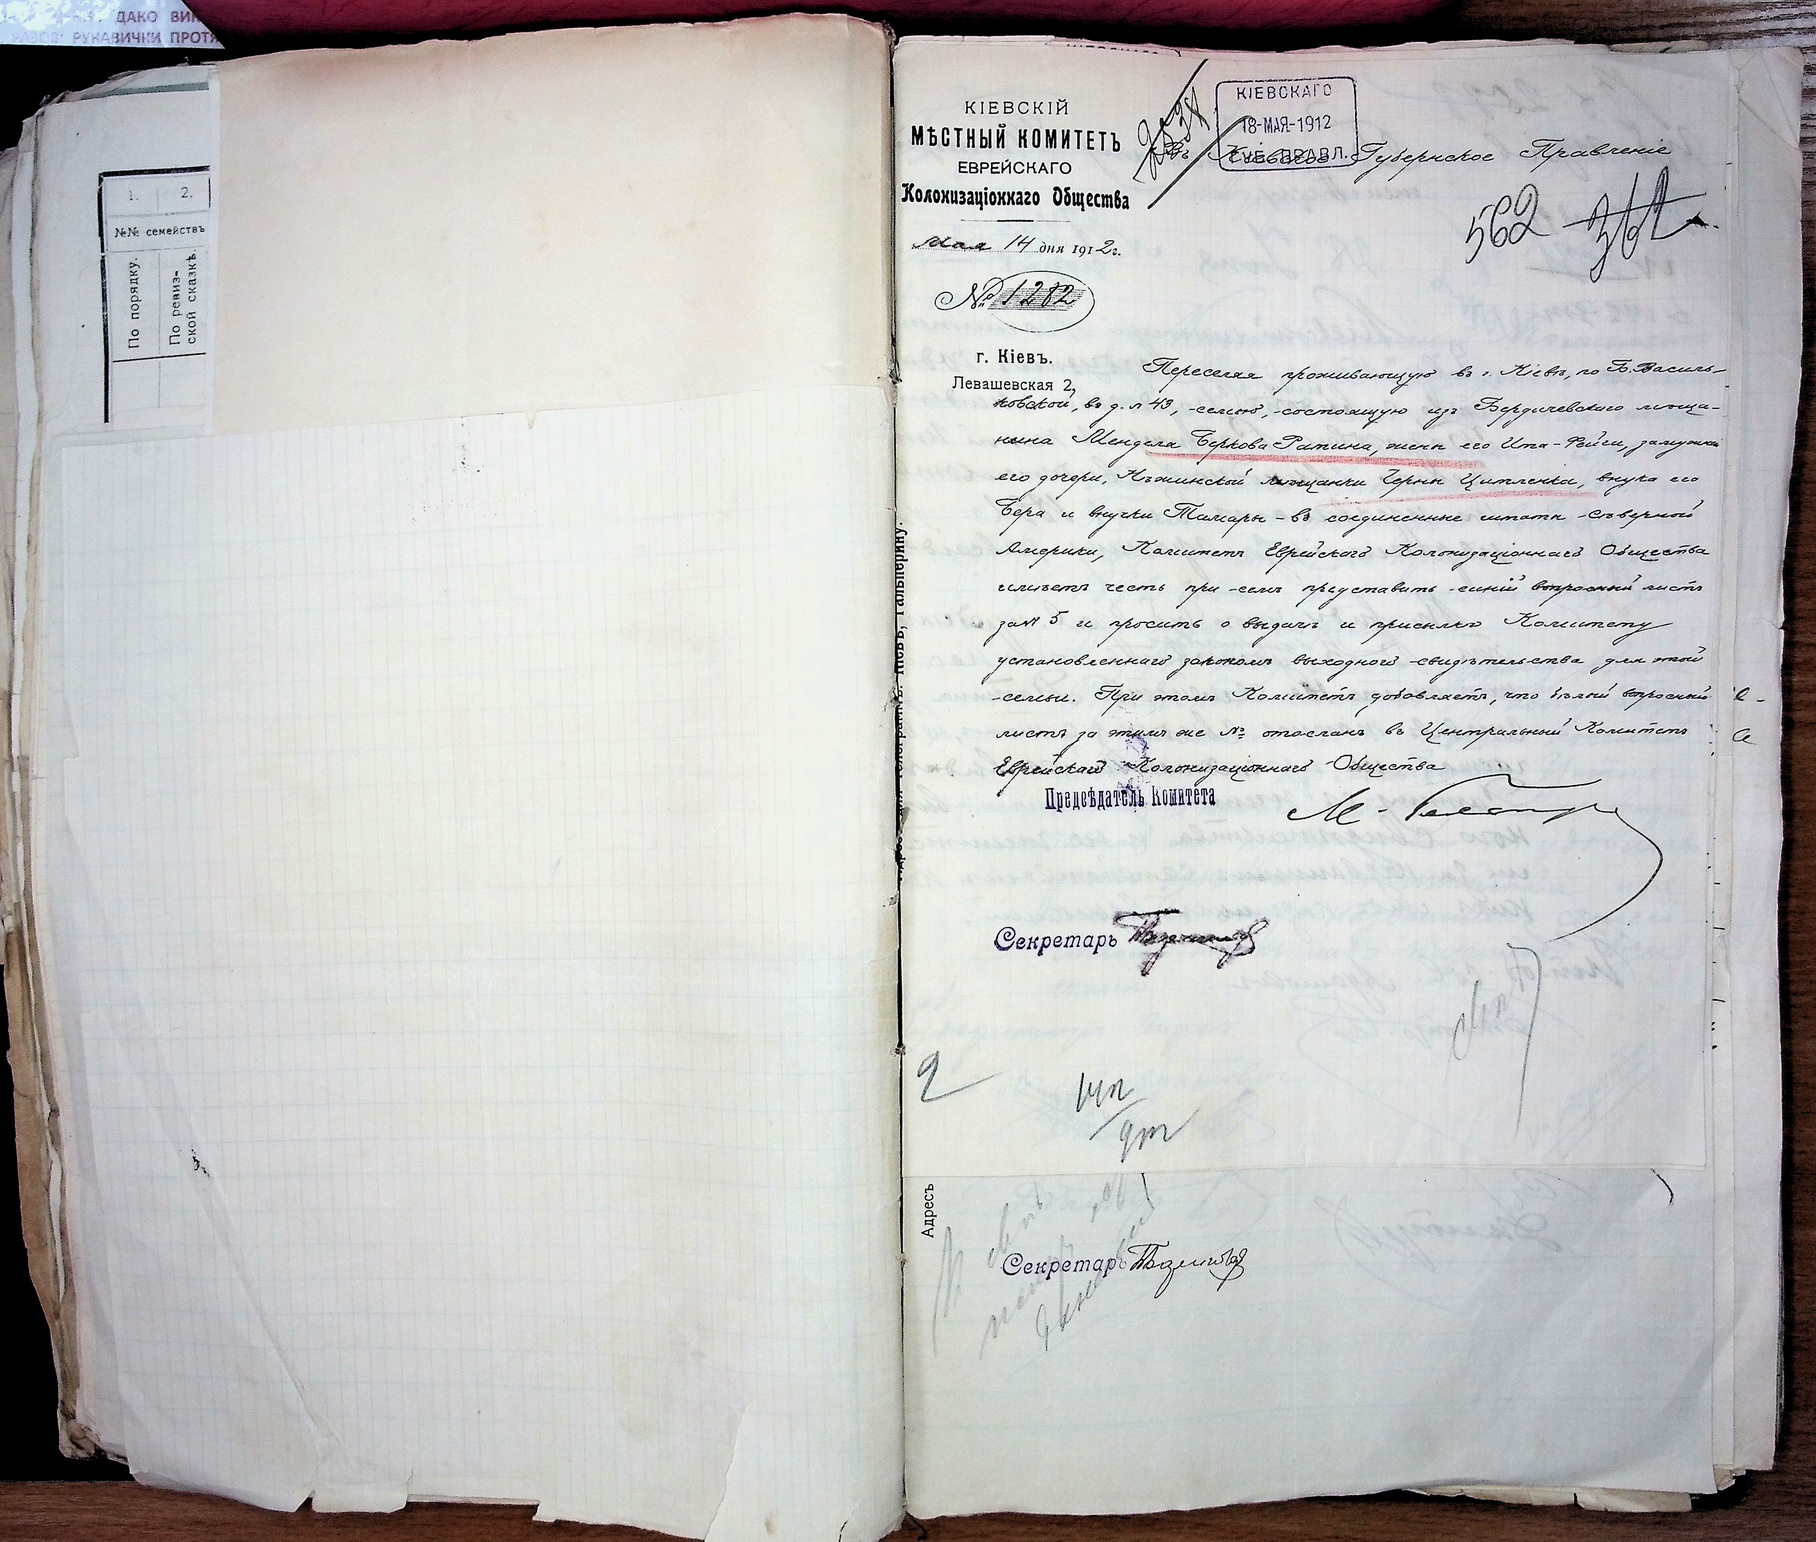 ДАКО
РУКАВИЧКИ
1. 2.
№№ семействъ
По порядку.
По ревиз-
ской сказкѣ.
КІЕВСКІЙ
МѢСТНЫЙ КОМИТЕТЪ
ЕВРЕЙСКАГО
Колонизаціоннаго Общества
Мая 14 дня 1912 г.
№ 1282
г. Кіевъ.
Левашевская 2,
КІЕВСКАГО
18-МАЯ-1912
ГУБ. ПРАВЛ.
Въ Кіевское Губернское Правленіе
562
Переселяя проживающую въ г. Кіевѣ, по Б. Василь-
ковской, въ д. № 43, семью, состоящую изъ Бердичевскаго мѣща-
нина Менделя Беркова Ратина, жены его Ита-Фейги, замужней
его дочери, Нѣжинской мѣщанки Черны Цитленка, внука его
Бера и внучки Тамары - въ соединенные штаты Сѣверной
Америки, Комитетъ Еврейскаго Колонизаціоннаго Общества
имѣетъ честь при семъ представить синій вопросный листъ
за № 5 и просить о выдачѣ и присылкѣ Комитету
установленнаго закономъ выходного свидѣтельства для этой
семьи. При этомъ Комитетъ добавляетъ, что бѣлый вопросный
листъ за этимъ же № отосланъ въ Центральный Комитетъ
Еврейскаго Колонизаціоннаго Общества
Предсѣдатель Комитета
Секретарь
2
Адресъ
Секретарь